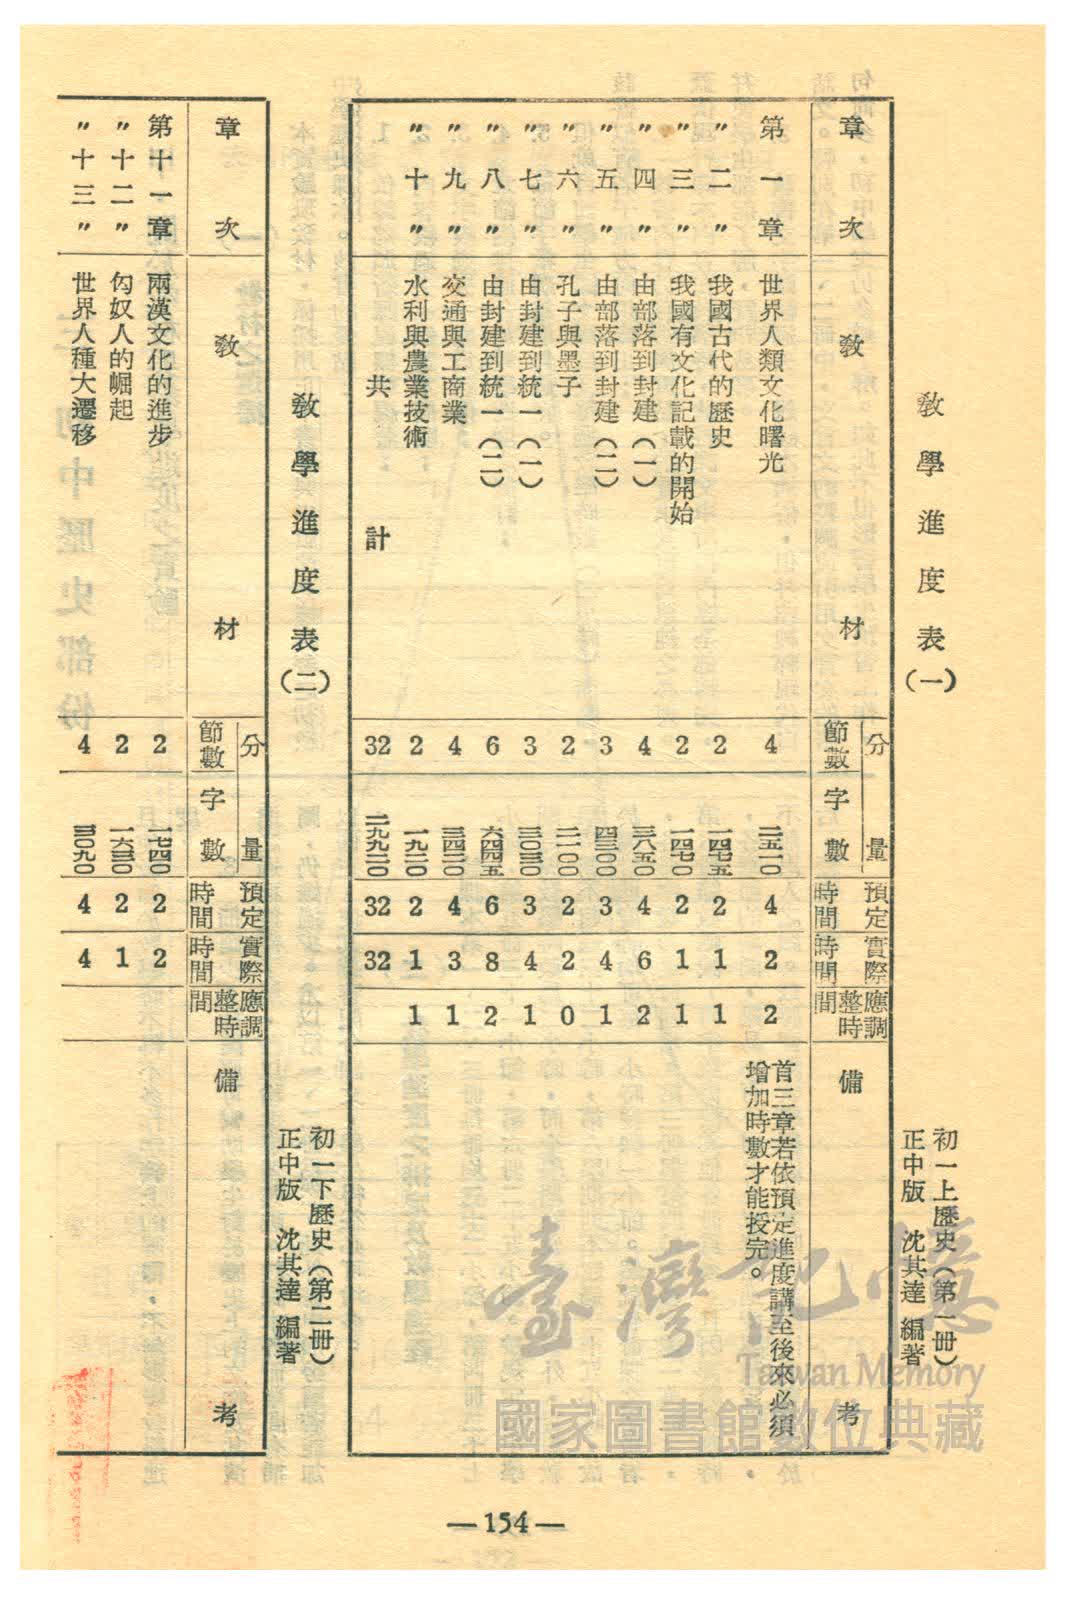 教學進度表(一)
初一上歷史(第一冊)
正中版 沈其達 編著
章次 教材 分量 節數 字數 預定時間 實際時間 應調整時間 備考
第一章 世界人類文化曙光 4 二五一〇 4 2 2 首三章若依預定進度講至後來必須增加時數才能授完。
〃二〃 我國古代的歷史 2 一四七五 2 1 1
〃三〃 我國有文化記載的開始 2 一四七〇 2 1 1
〃四〃 由部落到封建(一) 4 三八五〇 4 6 2
〃五〃 由部落到封建(二) 3 四三〇〇 3 4 1
〃六〃 孔子與墨子 2 二一〇〇 2 2 0
〃七〃 由封建到統一(一) 3 三〇三〇 3 4 1
〃八〃 由封建到統一(二) 6 六四四五 6 8 2
〃九〃 交通與工商業 4 三四二〇 4 3 1
〃十〃 水利與農業技術 2 一九二〇 2 1 1
共計 32 二九九二〇 32 32
教學進度表(二)
初一下歷史(第二冊)
正中版 沈其達 編著
章次 教材 分量 節數 字數 預定時間 實際時間 應調整時間 備考
第十一章 兩漢文化的進步 2 一七四〇 2 2
〃十二〃 匈奴人的崛起 2 一六三〇 2 1
〃十三〃 世界人種大遷移 4 三〇九〇 4 4
—154—
臺灣記憶
Taiwan Memory
國家圖書館數位典藏